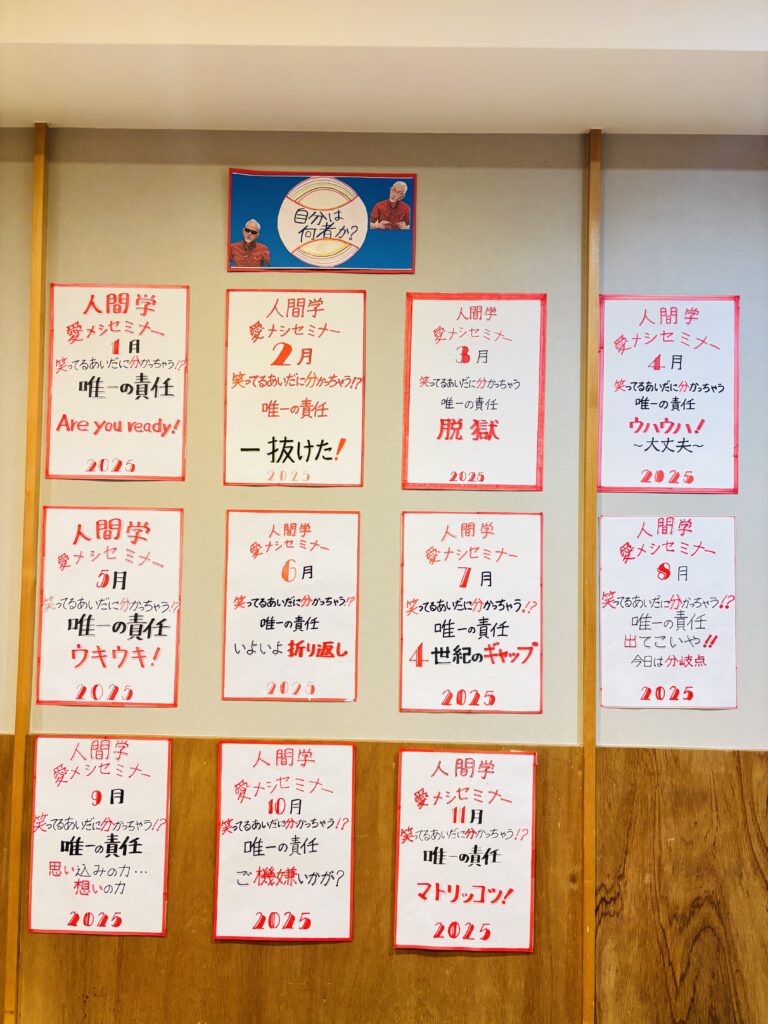 自分は
何者か?
人間学
愛メシセミナー
1月
笑ってるあいだに分かっちゃう!?
唯一の責任
Are you ready!
2025
人間学
愛メシセミナー
2月
笑ってるあいだに分かっちゃう!?
唯一の責任
一抜けた!
2025
人間学
愛メシセミナー
3月
笑ってるあいだに分かっちゃう
唯一の責任
脱獄
2025
人間学
愛メシセミナー
4月
笑ってるあいだに分かっちゃう
唯一の責任
ウハウハ!
~大丈夫~
2025
人間学
愛メシセミナー
5月
笑ってるあいだに分かっちゃう!?
唯一の責任
ウキウキ!
2025
人間学
愛メシセミナー
6月
笑ってるあいだに分かっちゃう!?
唯一の責任
いよいよ折り返し
2025
人間学
愛メシセミナー
7月
笑ってるあいだに分かっちゃう!?
唯一の責任
4世紀のギャップ
2025
人間学
愛メシセミナー
8月
笑ってるあいだに分かっちゃう!?
唯一の責任
出てこいや!!
今日は分岐点
2025
人間学
愛メシセミナー
9月
笑ってるあいだに分かっちゃう!?
唯一の責任
思い込みの力…
想いの力
2025
人間学
愛メシセミナー
10月
笑ってるあいだに分かっちゃう!?
唯一の責任
ご機嫌いかが?
2025
人間学
愛メシセミナー
11月
笑ってるあいだに分かっちゃう!?
唯一の責任
マトリッコツ!
2025